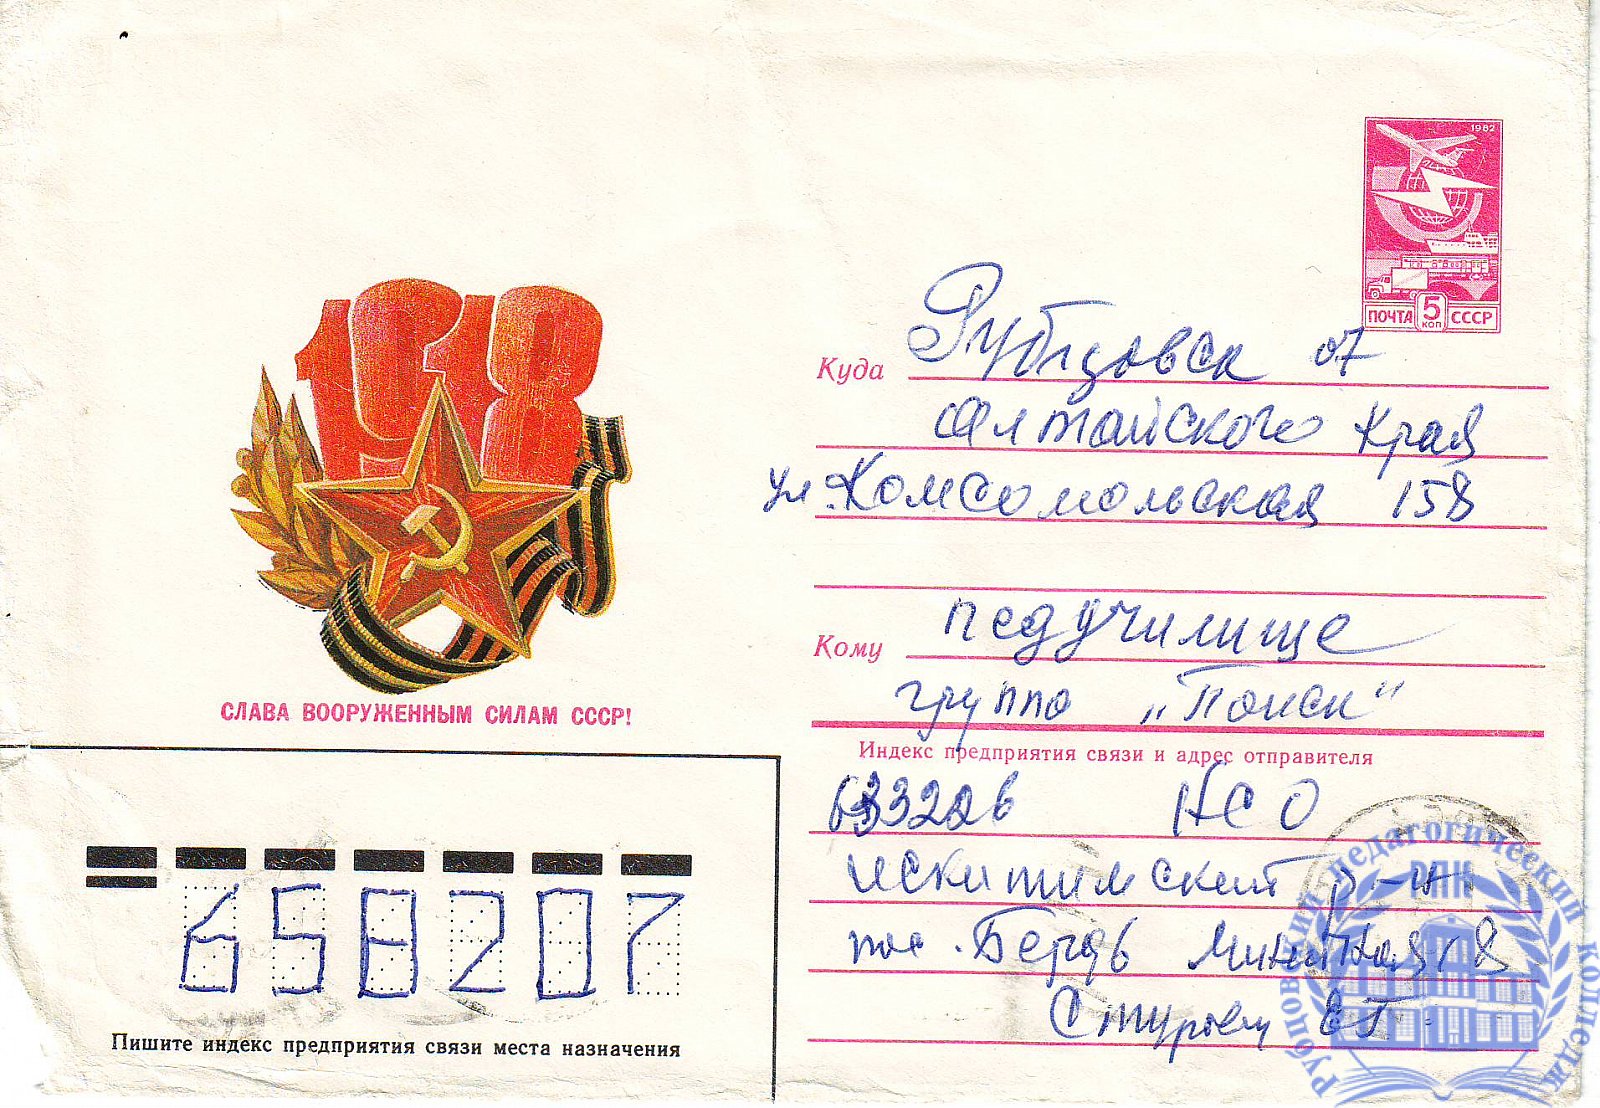 1918
СЛАВА ВООРУЖЕННЫМ СИЛАМ СССР!
1982
ПОЧТА 5 КОП СССР
Куда Рубцовск 07
Алтайского Края
ул. Комсомольская 158
Кому педучилище
группа „Поиск"
Индекс предприятия связи и адрес отправителя
633226 НСО
Искитимский р-н
пос. Бердь
658207
Пишите индекс предприятия связи места назначения
Рубцовский педагогический колледж
РПК